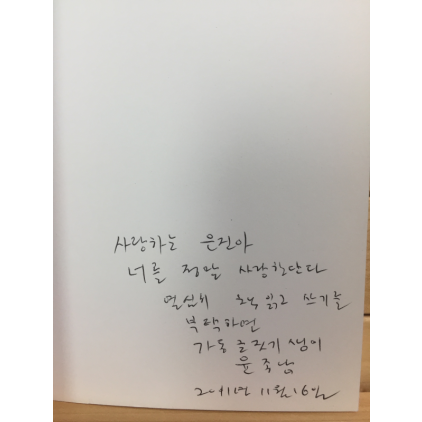 사랑하는 은진아
너를 정말 사랑한단다
열심히 읽고 쓰기를
부탁하면
가동 글짓기 샘이
윤
2011년 11월 16일